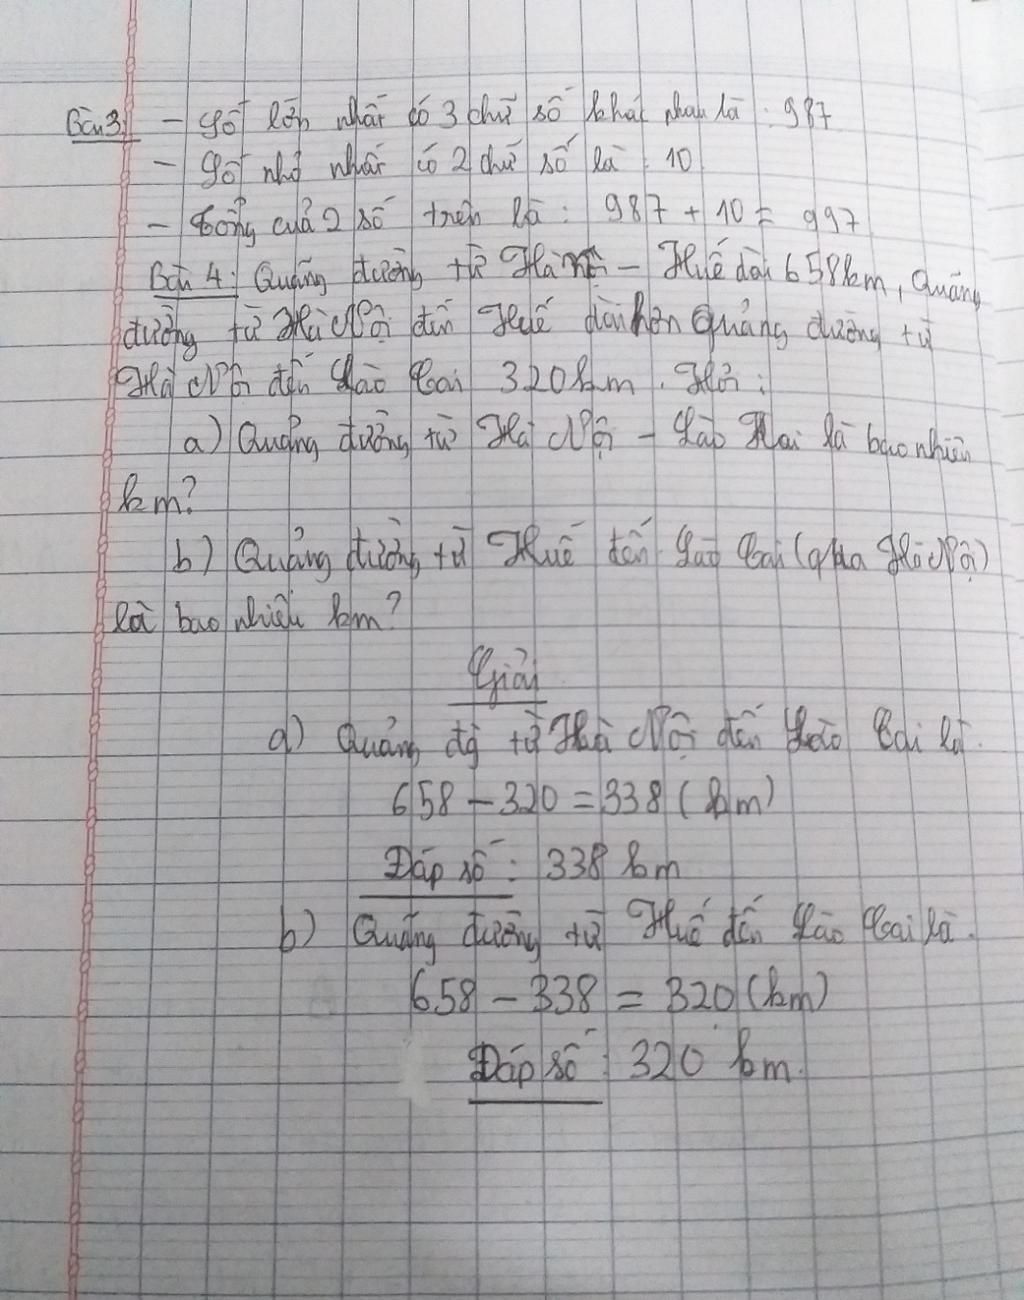 Bài 3: - Số lớn nhất có 3 chữ số khác nhau là : 987
- Số nhỏ nhất có 2 chữ số là : 10
- Tổng của 2 số trên là : 987 + 10 = 997
Bài 4: Quãng đường từ Hà Nội - Huế dài 658 km, Quãng
đường từ Hà Nội đến Huế dài hơn Quảng đường từ
Hà Nội đến Lào Cai 320 km. Hỏi :
a) Quảng đường từ Hà Nội - Lào Hai là bao nhiêu
km?
b) Quảng đường từ Huế đến Lào Cai (qua Hà Nội)
là bao nhiêu km?
Giải
a) Quảng đg từ Hà Nội đến Lào Cai là.
658 - 320 = 338 (km)
Đáp số : 338 km
b) Quãng đường từ Huế đến Lào Cai là.
658 - 338 = 320 (km)
Đáp số : 320 km.